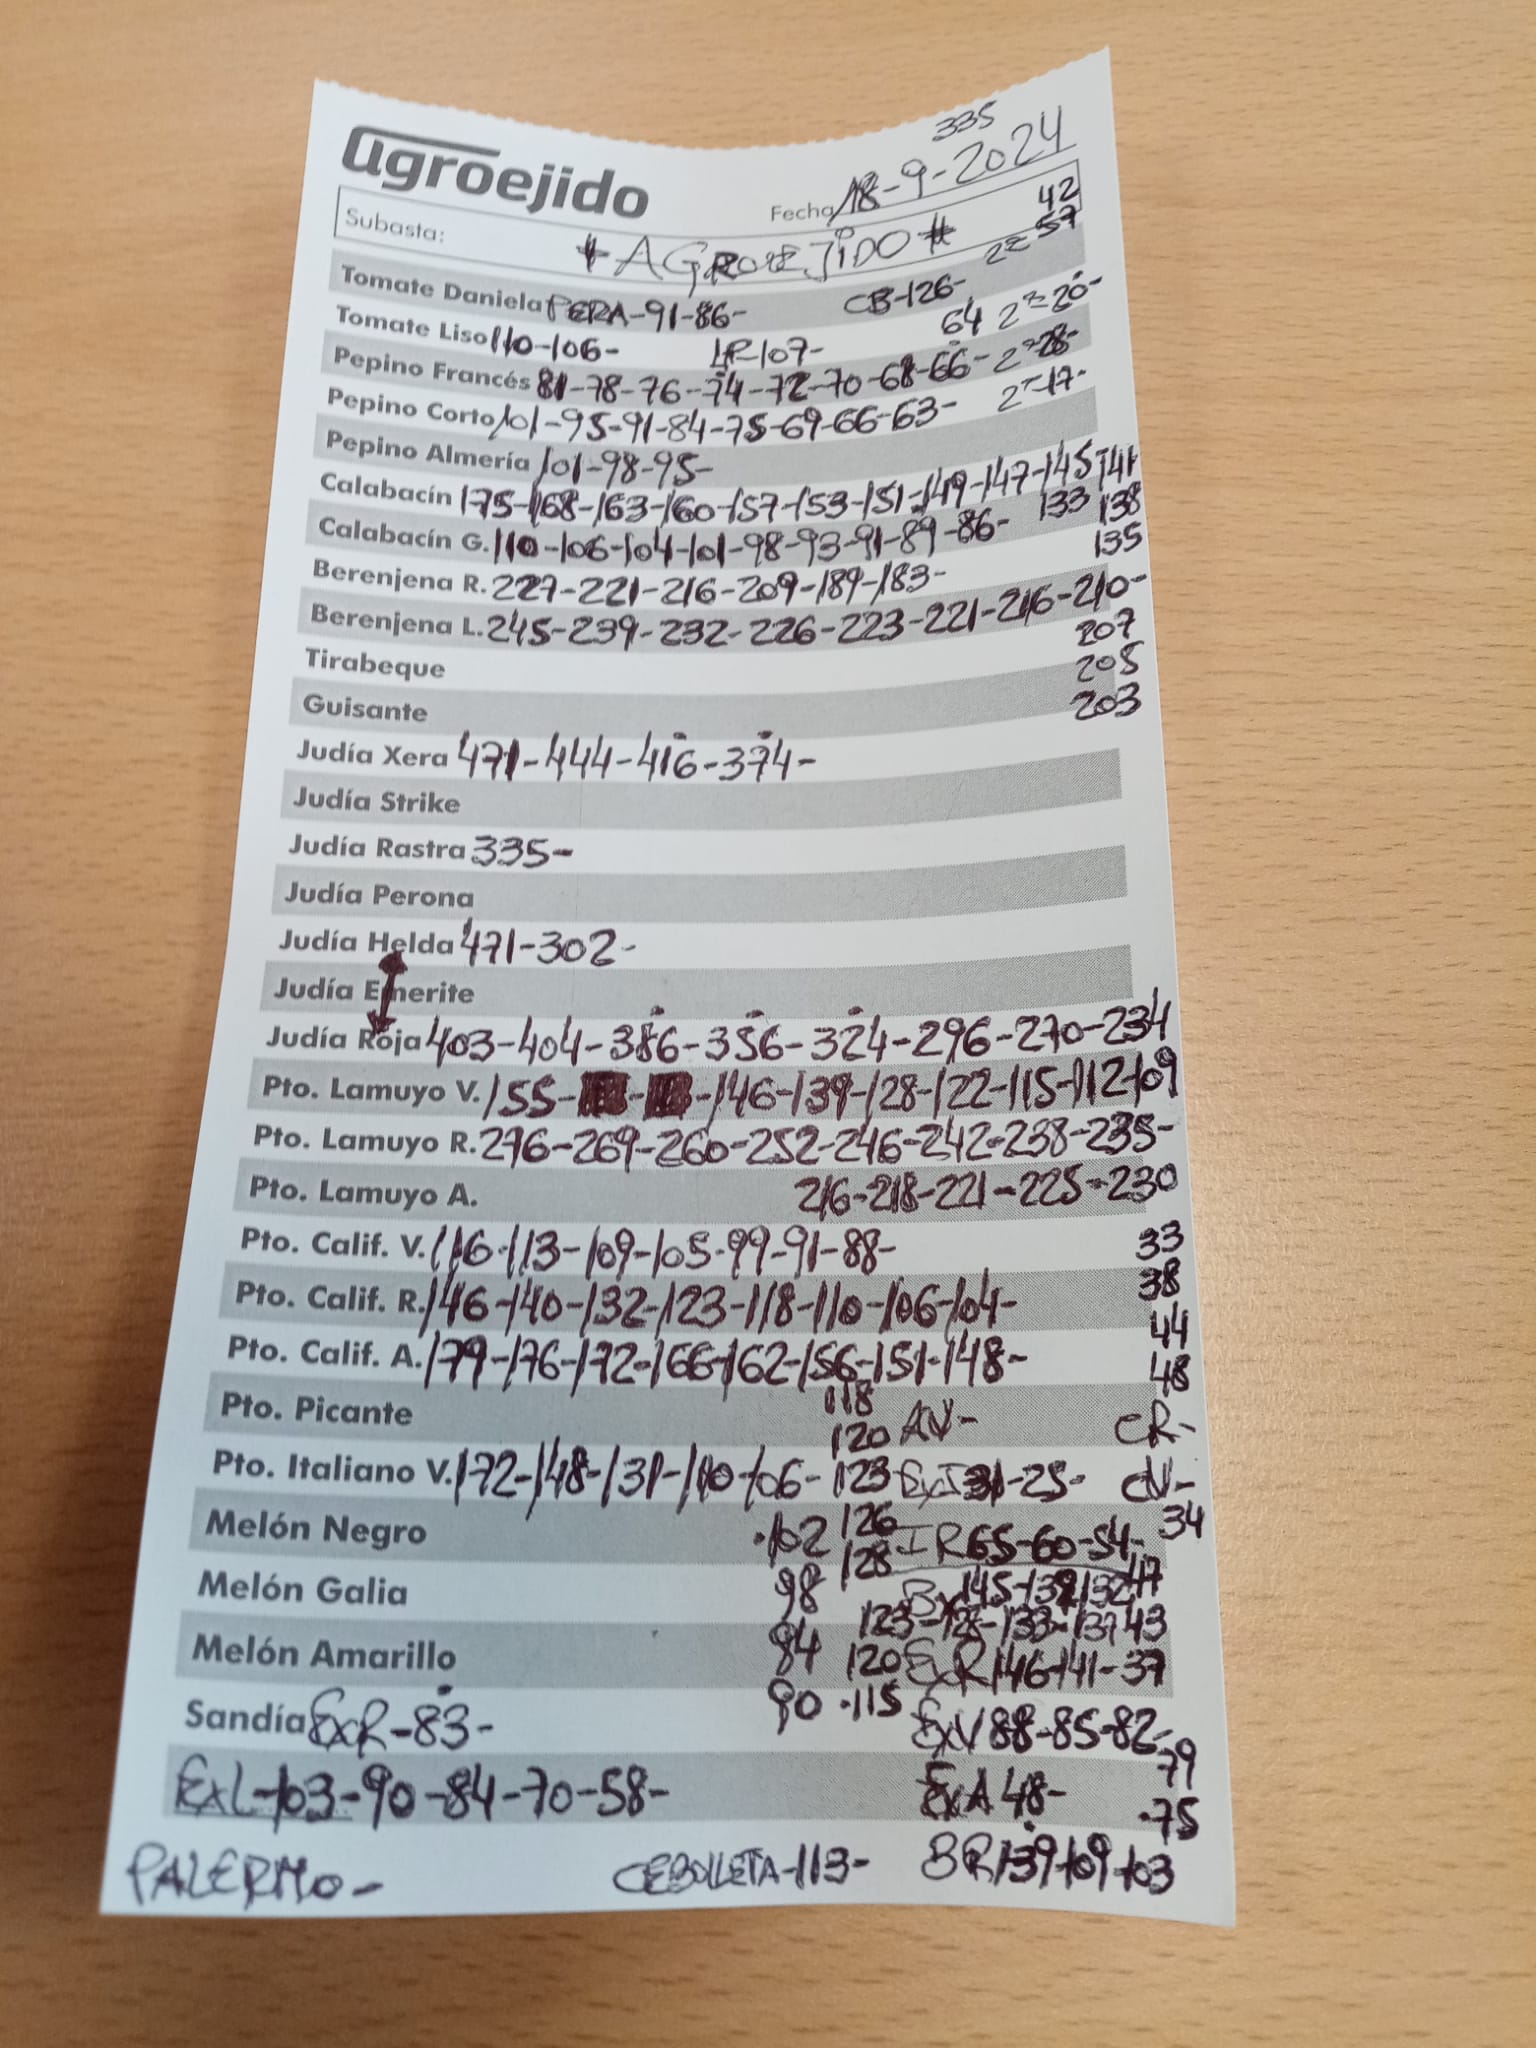 335
agroejido
Fecha 18-9-2024
Subasta: #AGROEJIDO# 42
Tomate Daniela PERA-91-86- CB-126- 2ª 57
Tomate Liso 110-106- LR-107- 64 2ª 20-
Pepino Francés 81-78-76-74-72-70-68-66- 2ª 28-
Pepino Corto 101-95-91-84-75-69-66-63- 2ª 17-
Pepino Almería 101-98-95-
Calabacín 175-168-163-160-157-153-151-149-147-145-141
Calabacín G. 110-106-104-101-98-93-91-89-86- 133 138
135
Berenjena R. 227-221-216-209-189-183-
Berenjena L. 245-239-232-226-223-221-216-210-
207
Tirabeque 205
Guisante 203
Judía Xera 471-444-416-374-
Judía Strike
Judía Rastra 335-
Judía Perona
Judía Helda 471-302-
Judía Emerite
Judía Roja 403-404-386-356-324-296-270-234
Pto. Lamuyo V. 155- - -146-139-128-122-115-112-109
Pto. Lamuyo R. 276-269-260-252-246-242-238-235-
Pto. Lamuyo A. 216-218-221-225-230
Pto. Calif. V. 116-113-109-105-99-91-88- 33
Pto. Calif. R. 146-140-132-123-118-110-106-104- 38
44
Pto. Calif. A. 179-176-172-166-162-156-151-148- 48
118
Pto. Picante 120 AV- CR-
Pto. Italiano V. 172-148-131-110-106- 123 ExI 31-25- CV-
126 34
Melón Negro .102 128 IR 65-60-54-
47
Melón Galia 98 145-139-132
123-128-133-137 43
Melón Amarillo 94 120 ExR 146-141- 37
90 .115
Sandía ExR-83- ExV 88-85-82-
79
ExL-103-90-84-70-58- ExA 48- .75
PALERMO- CEBOLLETA-113- BR 139-109-103